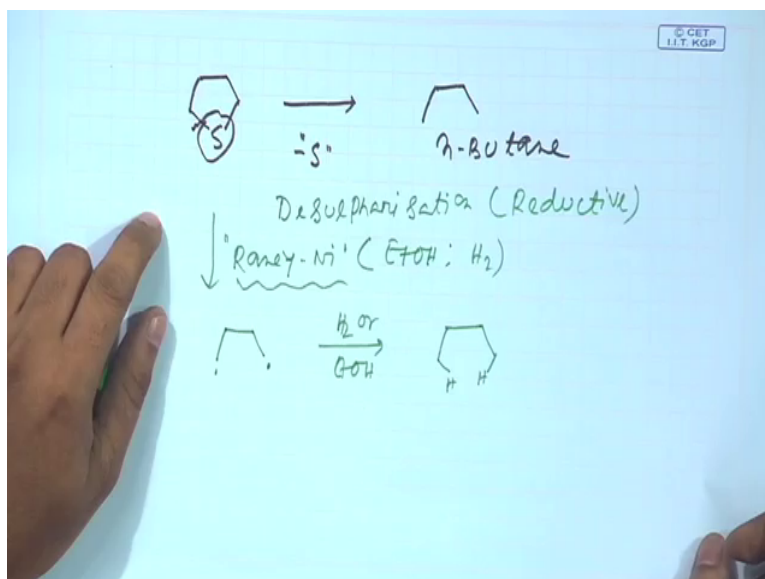 © CET
I.I.T. KGP
S
"-S"
n-Butane
Desulpharisation (Reductive)
"Raney-Ni" (EtOH; H2)
H2 or
EtOH
H H